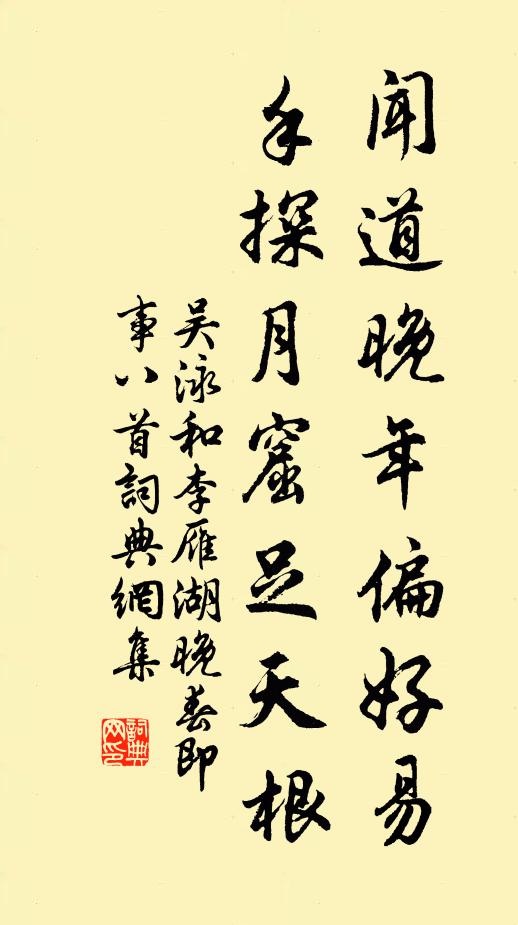 聞道晚年偏好易
手探月窟足天根
吴泳和李雁湖晚春即
事八首詞典網集
詞典網印